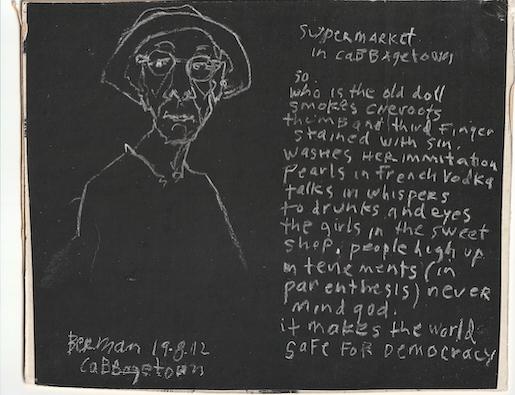 Supermarket
in caBBagetown
so.
who is the old doll
smokes cheroots
thumb and third finger
stained with sin,
washes her immitation
pearls in french vodka
talks in whispers
to drunks and eyes
the girls in the sweet
shop, people high up
in tenements (in
parenthesis) never
mind god.
it makes the world
safe for democracy
Berman 19.8.12
caBBagetown